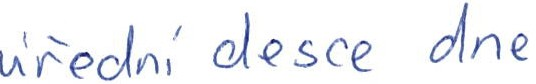 úřední desce dne